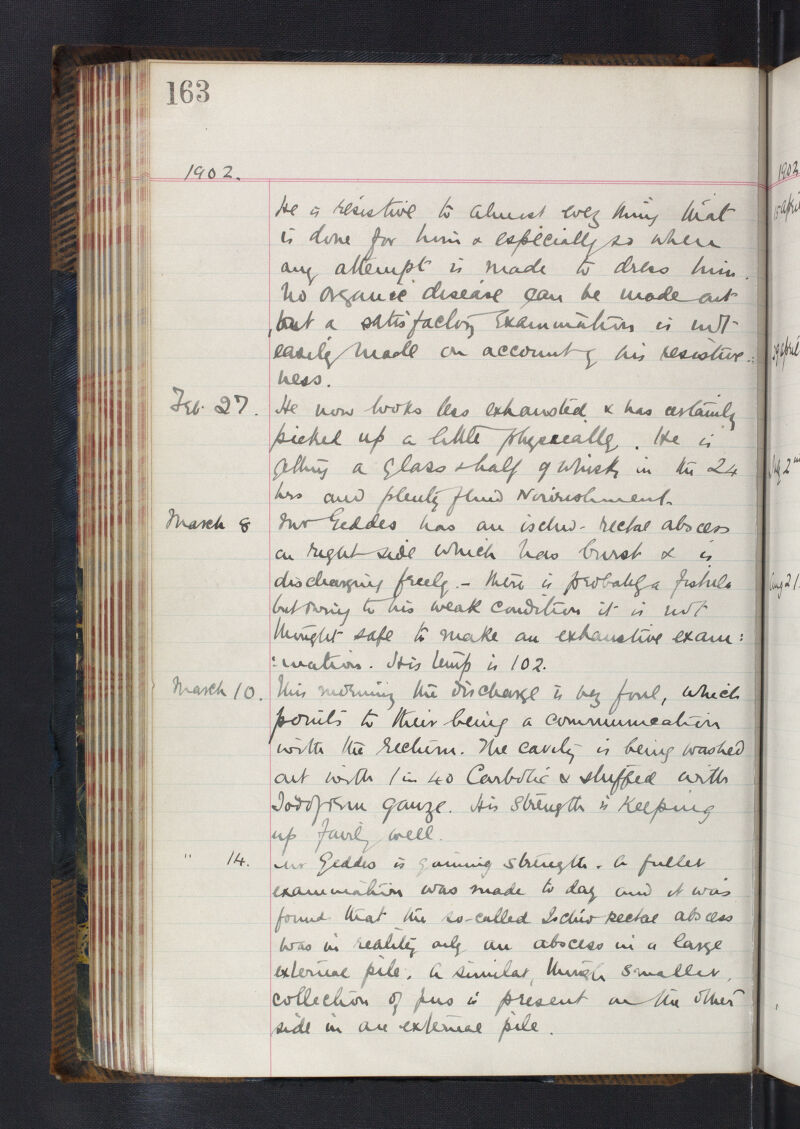 163
1902.
He is resistive to almost every thing that
is done for him & especially so when
any attempt is made to dress him.
No organic disease can be made out
but a satisfactory examination is not
easily made on account of his resistive-
ness.
Feb. 27. He now looks less exhausted & has certainly
picked up a little physically. He is
getting a glass & half of whisky in the 24
hrs and plenty fluid Nourishment.
March 8 Mr Geddes has an ischio-rectal abscess
on right side which has burst & is
discharging freely. – There is probably a fistula
but owing to his weak condition it is not
thought safe to make an exhaustive exam:
:ination. His temp is 102.
March 10. This morning the discharge is very foul, which
points to their being a communication
with the rectum. The cavity is being washed
out with 1 in 40 Carbolic & stuffed with
Iodoform gauze. His strength is keeping
up fairly well.
" 14. Mr Geddes is gaining strength. A fuller
examination was made to day and it was
found that the so-called Ischio-rectal abscess
was in reality only an abscess in a large
external pile. A similar, though smaller,
collection of pus is present on the other
side in an external pile.
1902
15 April
29 April
July 2nd
Aug 21.